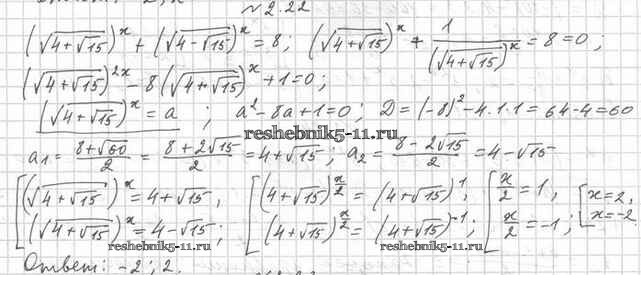 №2.22
(√(4+√15))^x + (√(4-√15))^x = 8; (√(4+√15))^x + 1/(√(4+√15))^x = 8 = 0;
(√(4+√15))^2x - 8(√(4+√15))^x + 1 = 0;
(√(4+√15))^x = a; a² - 8a + 1 = 0; D = (-8)² - 4·1·1 = 64 - 4 = 60
reshebnik5-11.ru
a₁ = (8+√60)/2 = (8+2√15)/2 = 4+√15; a₂ = (8-2√15)/2 = 4-√15
[(√(4+√15))^x = 4+√15, [(4+√15)^(x/2) = (4+√15)^1, [x/2 = 1, [x=2,
(√(4+√15))^x = 4-√15; (4+√15)^(x/2) = (4+√15)^-1; x/2 = -1; x=-2
reshebnik5-11.ru reshebnik5-11.ru
Ответ: -2; 2.